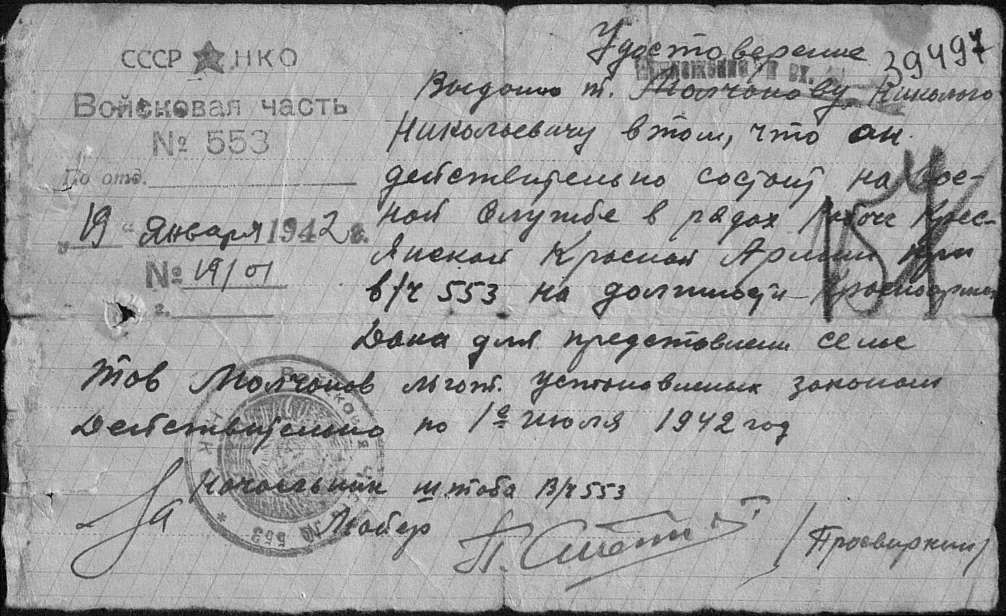 СССР НКО
Войсковая часть
№ 553
По отд.
„19“ Января 1942 г.
№ 19/01
г.
Удостоверение
39497
вх.
Выдано т. Молчанову Николаю
Николаевичу в том, что он
действительно состоит на вое-
ной службе в рядах Рабоче Крес-
янской Красной Армии при
в/ч 553 на должности
Дана для представлени семье
тов Молчанов льгот. установленых законом
Действительно по 1е июля 1942 год
Начальник штаба В/ч 553
За
Майор
(Просвиркин)
Войсковая
№ 553